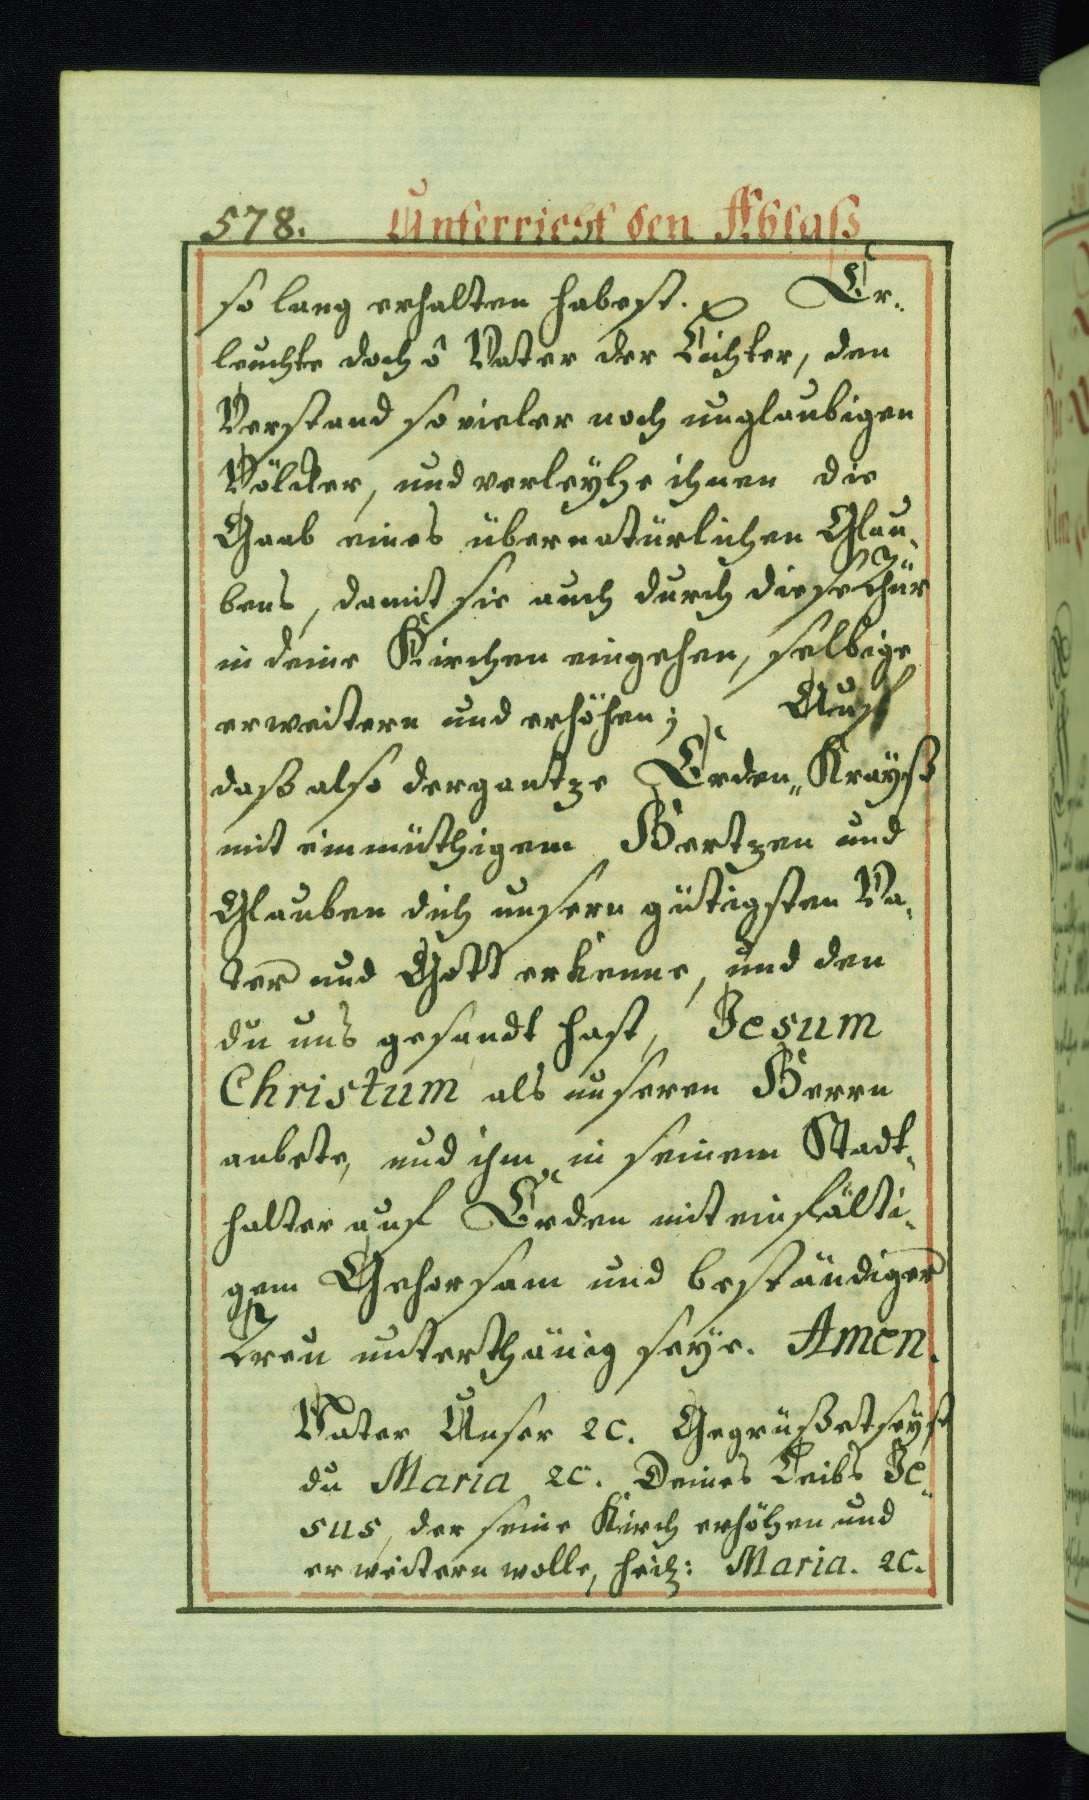 578. Unterricht den Ablaß
so lang erhalten habest. Er„
leuchte doch ô Vatter der Liechter, den
Verstand so vieler noch unglaubigen
Völcker, und verleyhe ihnen die
Gaab eines übernatürlichen Glau„
bens, damit sie auch durch diese Thür
in deine Kirchen eingehen, selbige
erweitern und erhöhen; Auf
daß also der gantze Erden„Krayß
mit einmüthigem Hertzen und
Glauben dich unsern gütigsten Va„
ter und Gott erkenne, und den
du uns gesandt hast, Jesum
Christum als unseren Herrn
anbete, und ihm in seinem Stadt„
halter auf Erden mit einfälti„
gem Gehorsam und beständiger
Treu unterthänig seye. Amen.
Vater Unser ꝛc. Gegrüßet seyst
du Maria ꝛc. Deines Leibs Je„
sus, der seine Kirch erhöhen und
erweitern wolle, heil: Maria. ꝛc.